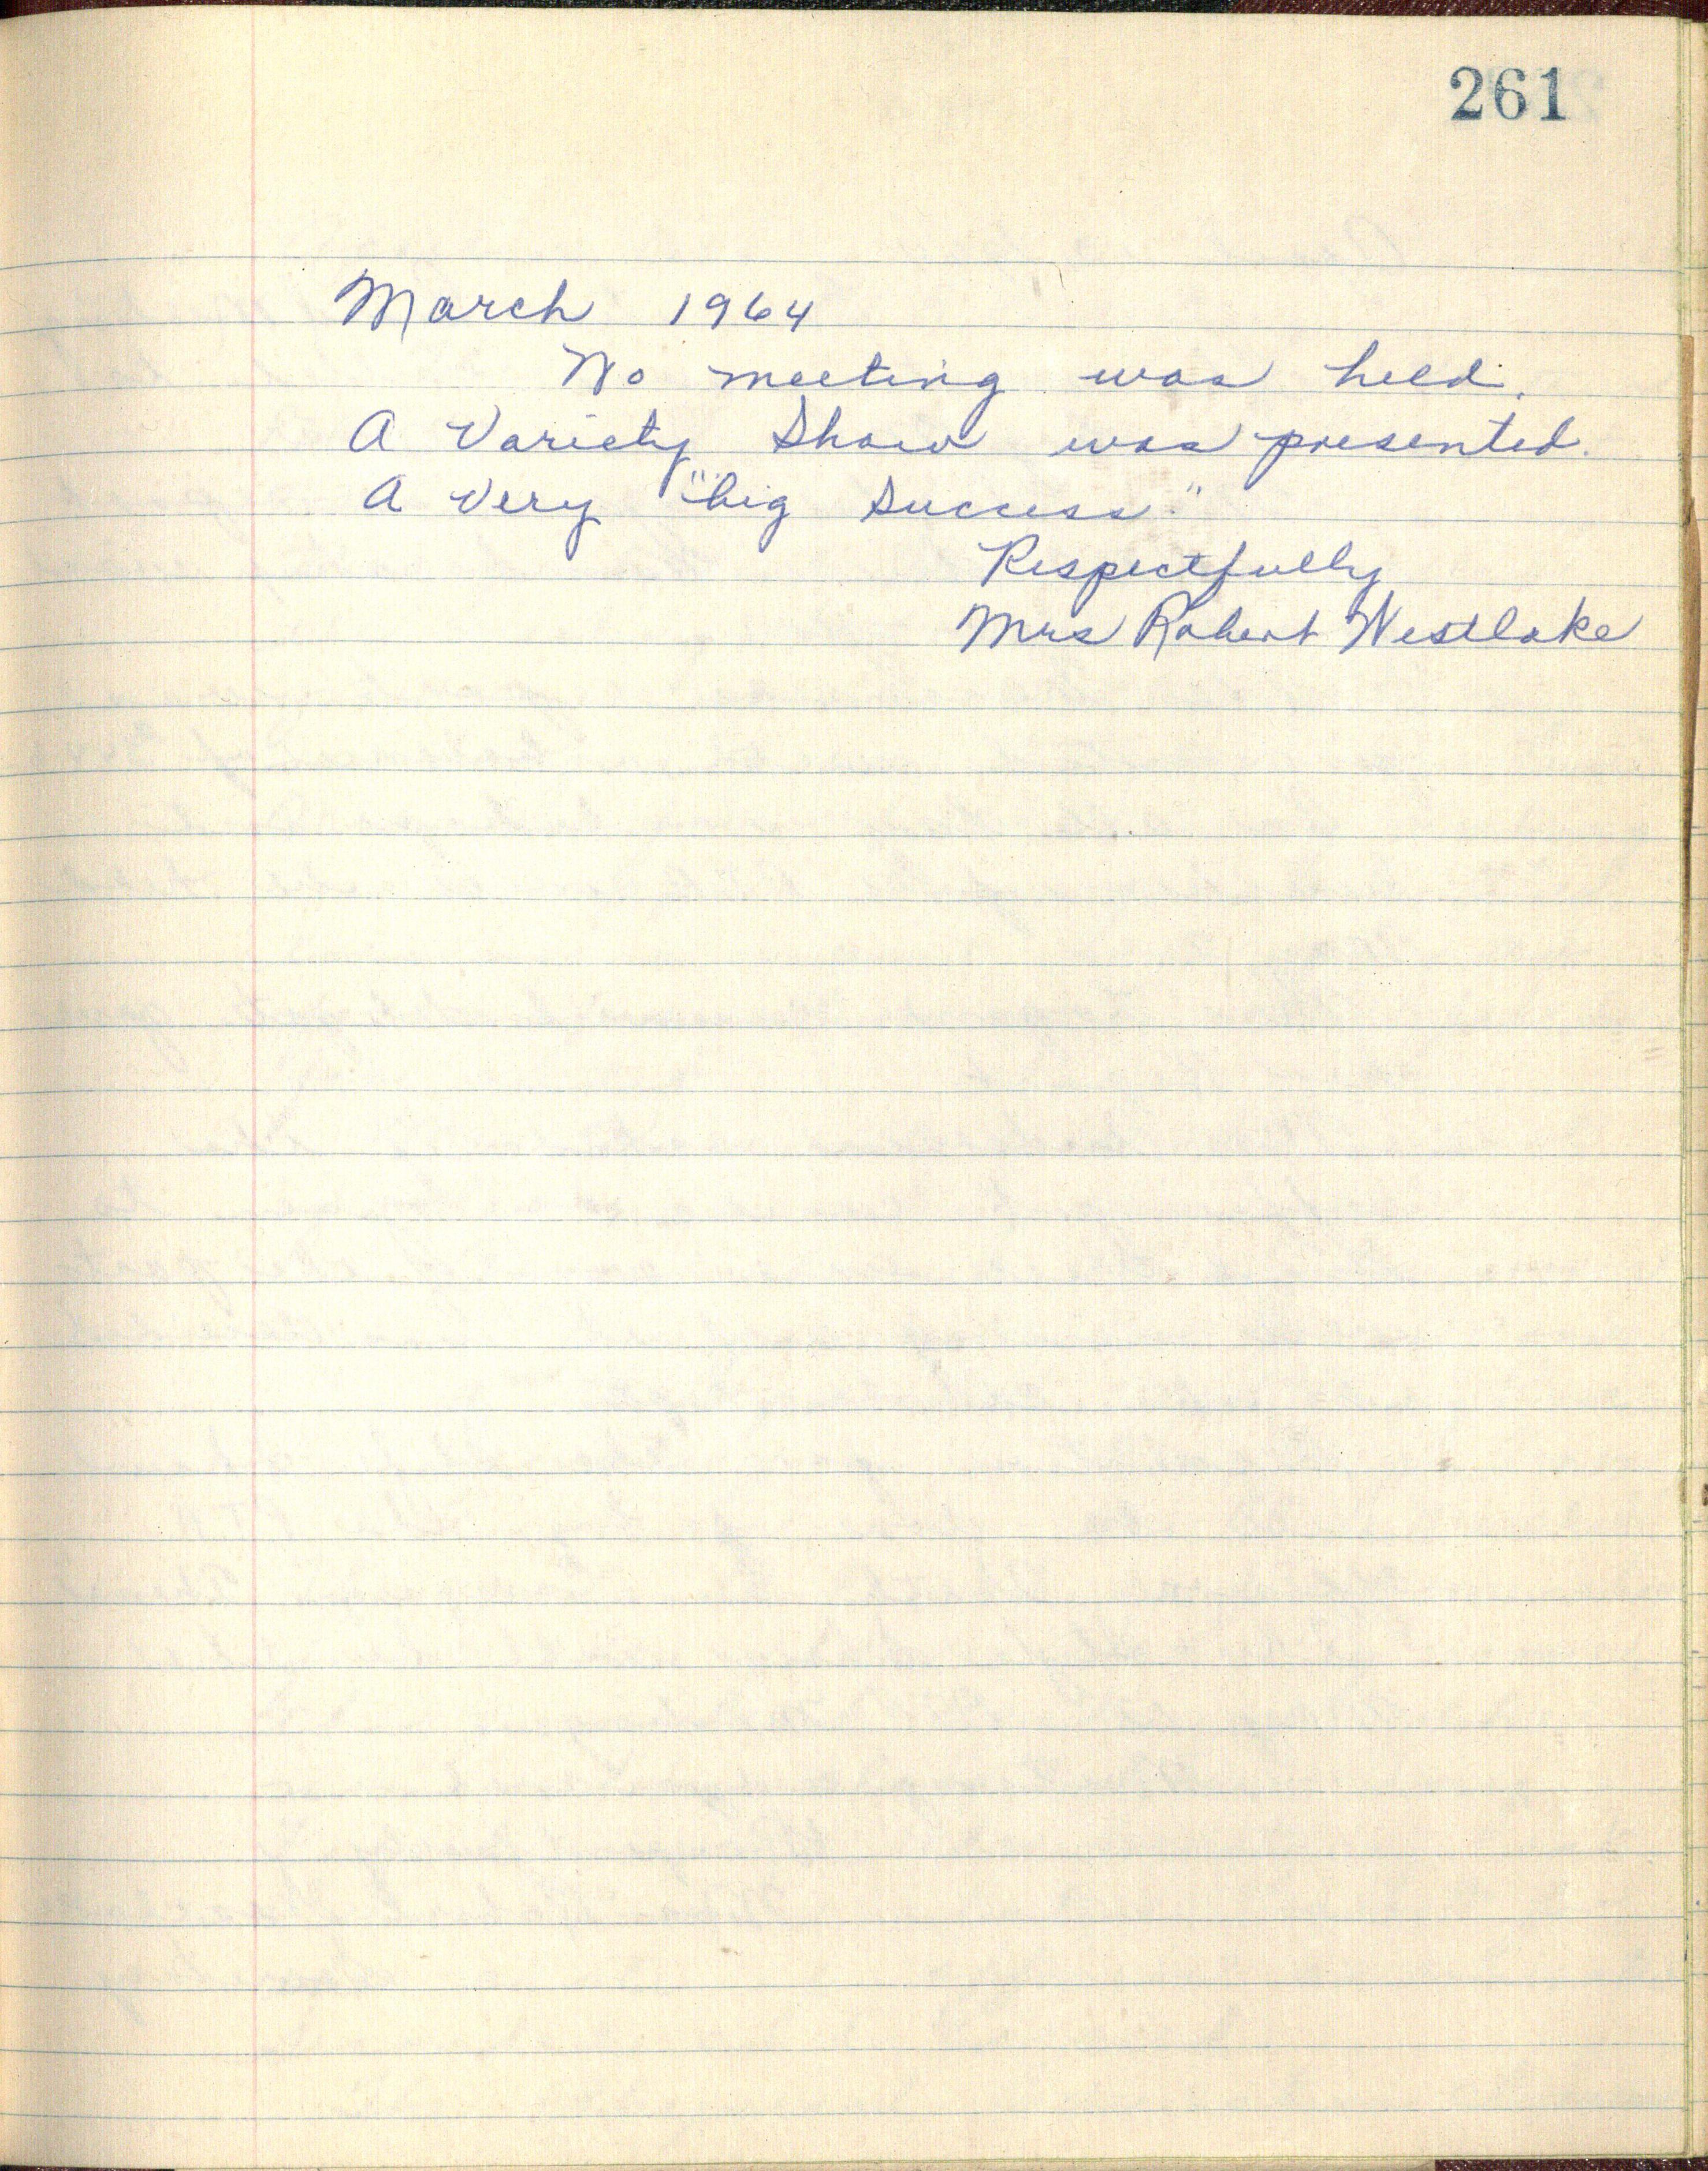 261
March 1964
No meeting was held.
A Variety Show was presented.
A Very "big success."
Respectfully
Mrs Robert Westlake